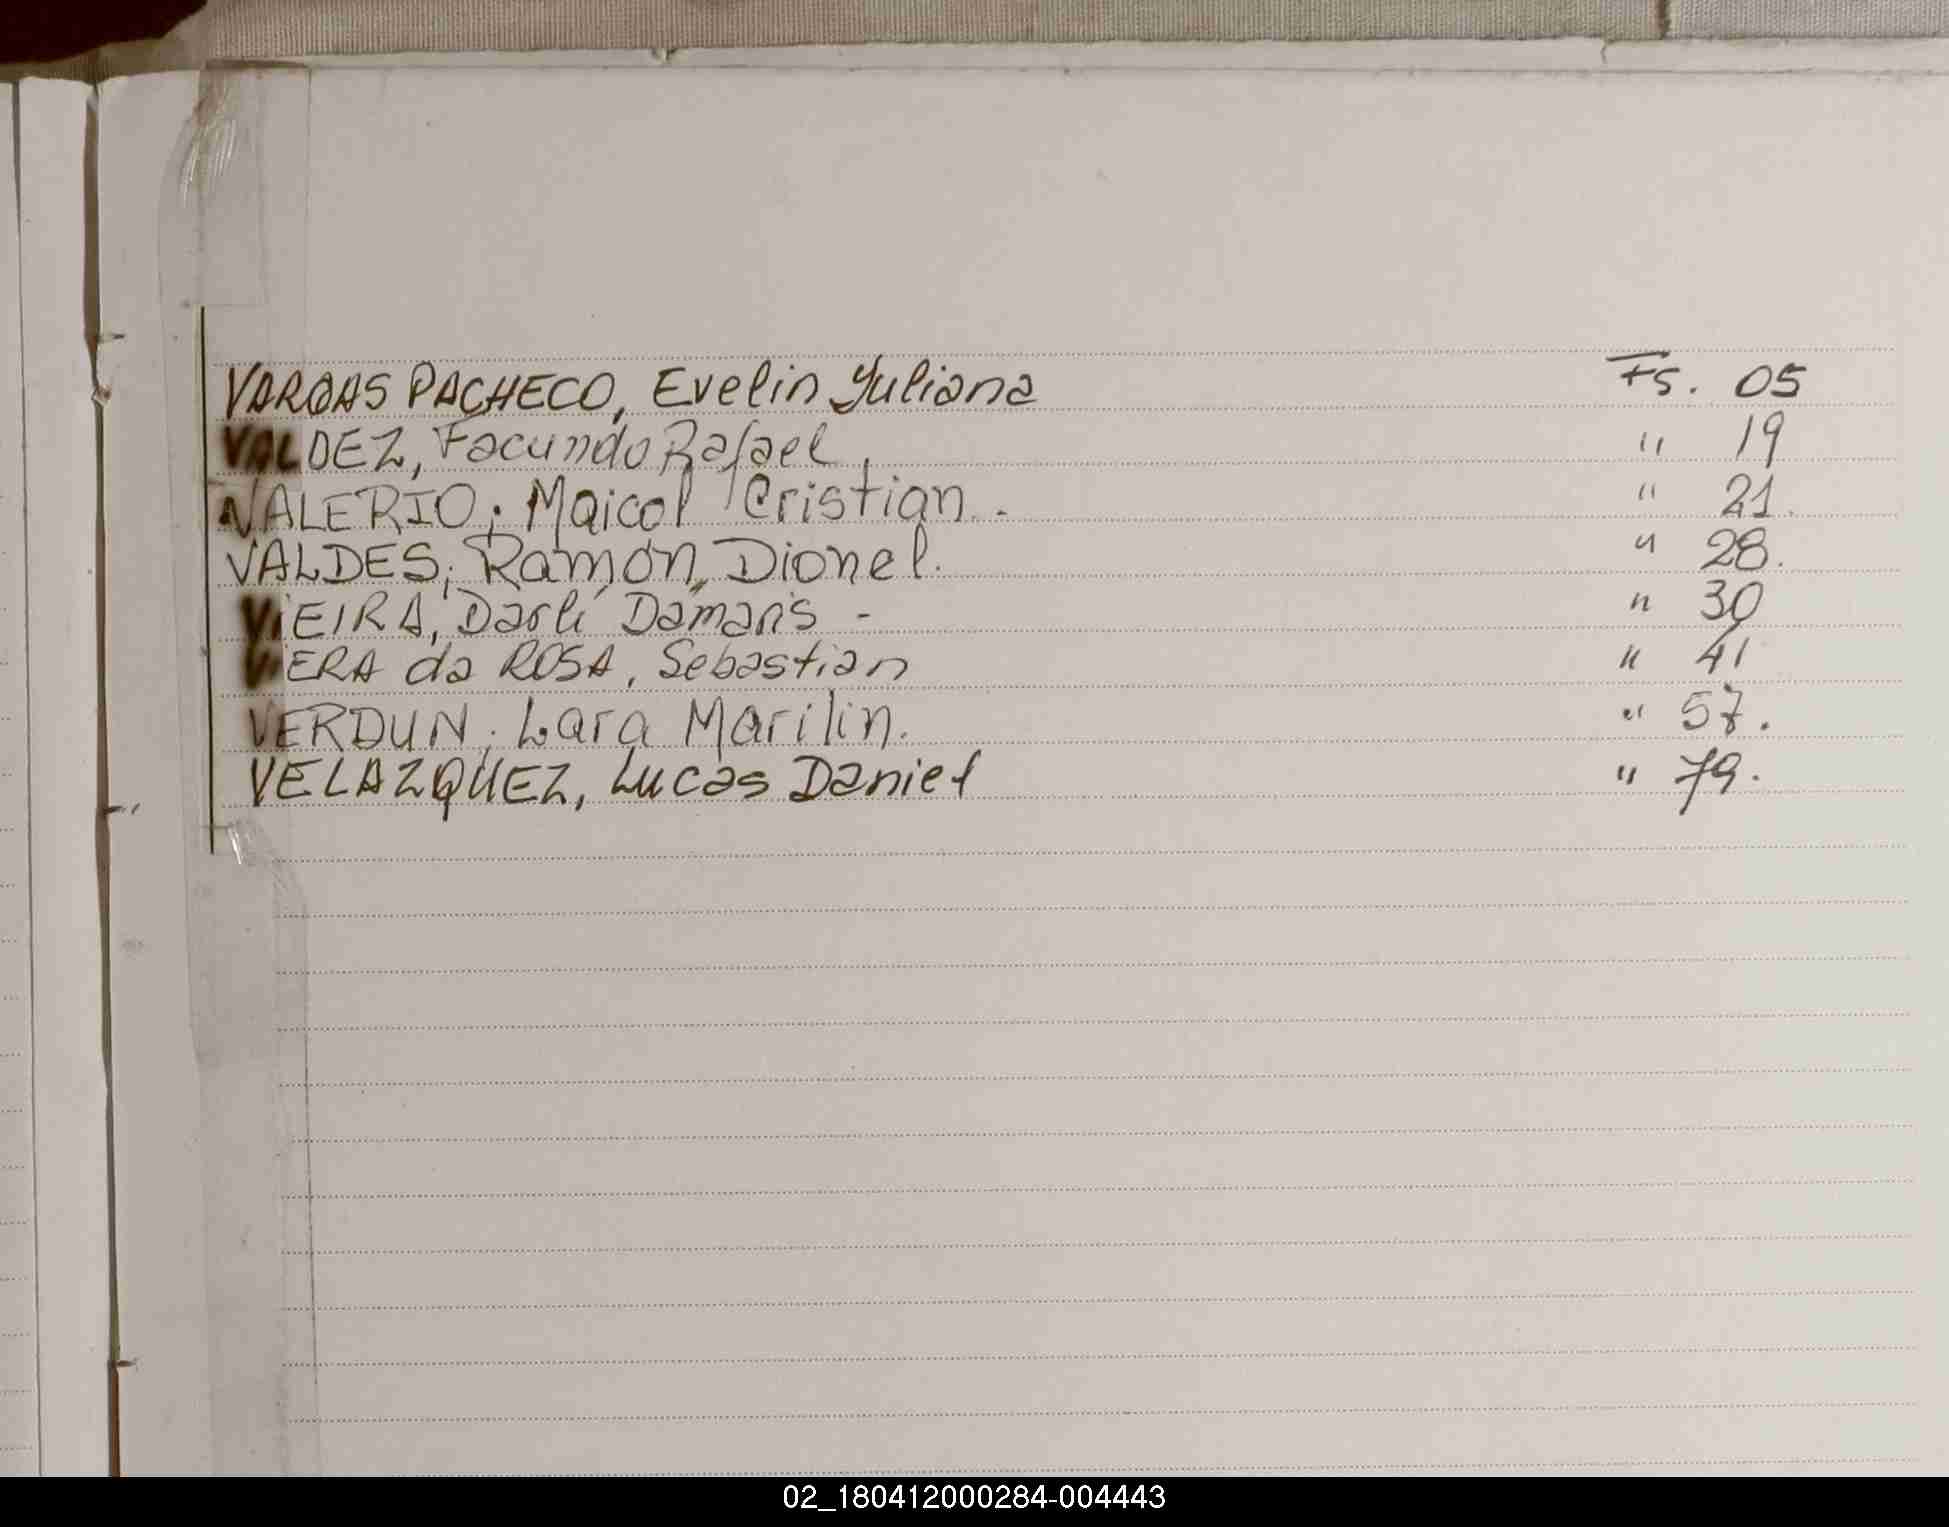 VARGAS PACHECO, Evelin Yuliana Fs. 05
VALDEZ, Facundo Rafael. " 19
VALERIO; Maicol Cristian. - " 21.
VALDES; Ramón, Dionel. " 28.
VIEIRA, Darli Damaris - " 30
VIERA da ROSA, Sebastian " 41
VERDUN; Lara Marilin. " 57.
VELAZQUEZ, Lucas Daniel " 79.
02_180412000284-004443